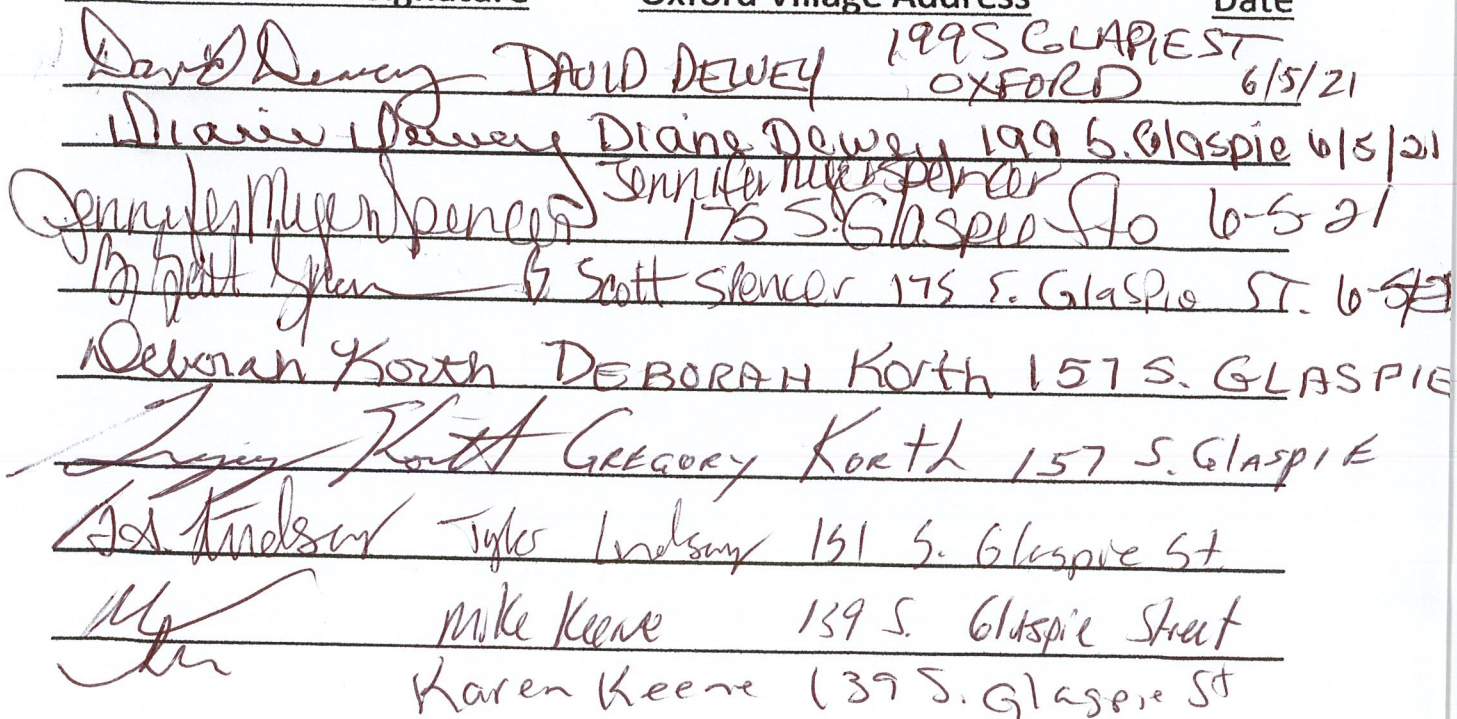 Signature Oxford Village Address Date
199 S GLAPIE ST
David Dewey DAVID DEWEY OXFORD 6/5/21
Diane Dewey Diane Dewey 199 S. Glaspie 6/5/21
Jennifer Myer Spencer
Jennifer Myer Spencer 175 S. Glaspie St 6-5-21
B Scott Spencer 175 S. Glaspie ST. 6-5-21
Deborah Korth DEBORAH Korth 157 S. GLASPIE
Gregory Korth GREGORY KORTH 157 S. GlASPIE
Lindsay Tyler Lindsay 151 S. Glaspie St.
Mike Keene 139 S. Glaspie Street
Karen Keene 139 S. Glaspie St